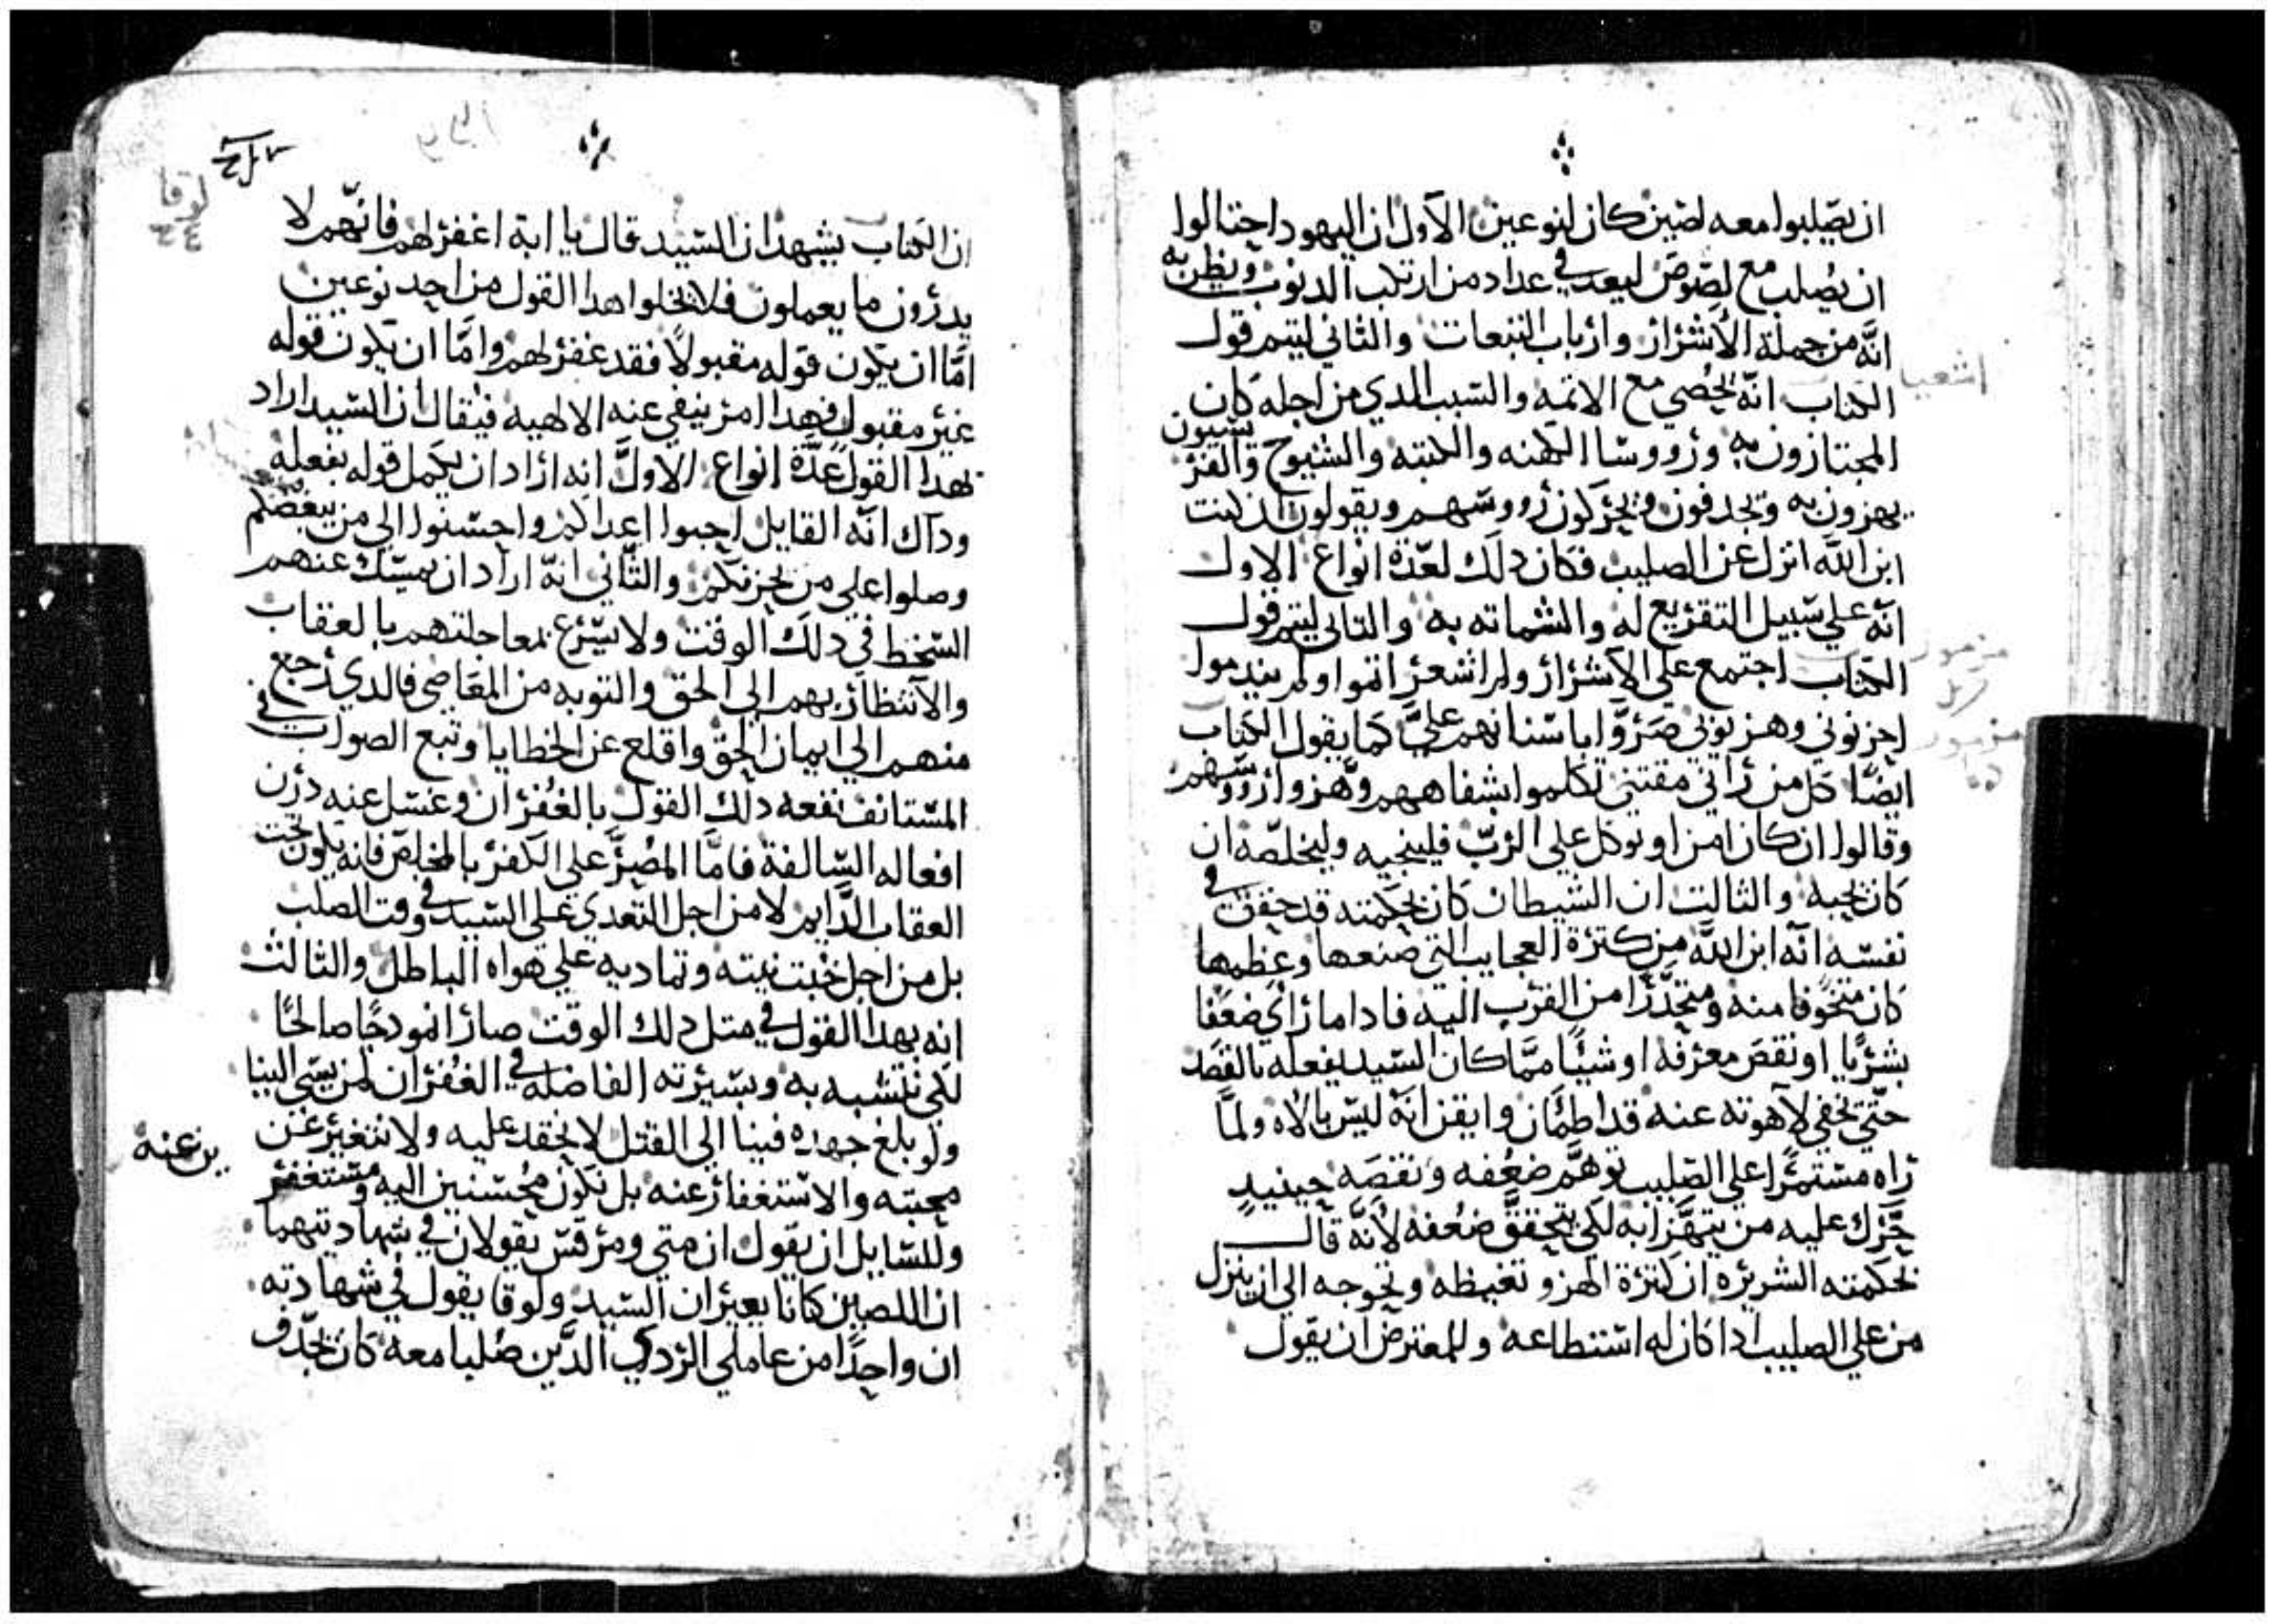 ان يصلبوا معه لصين كان لنوعين الاول ان اليهود احتالوا
ان يصلب مع لصوص ليعد في عداد من ارتكب الدنوب ويظن به
انه من جملة الاشرار وارباب التبعات والثاني ليتم قول
الكتاب انه يحصي مع الاتمه والسبب الدي من اجله كان
المجتازون به ورووسا الكهنه والكتبه والشيوخ والفريسيون
يهزون به ويجدفون ويحركون رووسهم ويقولون ان كنت
ابن الله انزل عن الصليب فكان دلك لعدة انواع الاول
انه علي سبيل التقريع له والشماته به والتاني ليتم قول
الكتاب اجتمع علي الاشرار ولم اشعر اتموا ولم يندموا
احزنوني وهزوني صروا باسنانهم علي كما يقول الكتاب
ايضا كل من راني مقتني تكلموا بشفاههم وهزوا رووسهم
وقالوا ان كان امن او توكل علي الرب فلينجيه وليخلصه ان
كان يحبه والثالت ان الشيطان كان بحكمته قد حقق في
نفسه انه ابن الله من كترة العجايب التي صنعها وعظمها
كان متخوفا منه ومتحدرا من القرب اليه فادا ما راي ضعفا
بشريا او نقص معرفه او شيا مما كان السيد يفعله بالقصد
حتي يخفي لاهوته عنه قد اطمان وايقن انه ليس بالاه ولما
راه مستمرا علي الصليب توهم ضعفه ونقصه حينيد
حرك عليه من يتهزا به لكي يتحقق ضعفه لانه قال
بحكمته الشريره ان كترة الهزو تغيظه وتحوجه الي ان ينزل
من علي الصليب ادا كان له استطاعه وللمعترض ان يقول
اشعيا
مزمور
مزمور
ان الكتاب يشهد ان السيد قال يا ابة اغفر لهم فانهم لا
يدرون ما يعملون فلا يخلوا هدا القول من احد نوعين
اما ان يكون قوله مقبولا فقد غفر لهم واما ان يكون قوله
غير مقبول فهدا امر ينفي عنه الالهيه فيقال ان السيد اراد
بهدا القول عدة انواع الاول انه اراد ان يكمل قوله بفعله
وداك انه القايل احبوا اعداكم واحسنوا الي من يبغضكم
وصلوا علي من يحزنكم والثاني انه اراد ان يمسك عنهم
السخط في دلك الوقت ولا يسرع بمعاجلتهم بالعقاب
والانتظار بهم الي الحق والتوبه من المعاصي فالدي رجع
منهم الي ايمان الحق واقلع عن الخطايا وتبع الصواب في
المستانف نفعه دلك القول بالغفران وغسل عنه درن
افعاله السالفة فاما المصر علي الكفر بالمخلص فانه يكون تحت
العقاب الدايم لا من اجل التعدي علي السيد في وقت الصلب
بل من اجل خبت نيته وتماديه علي هواه الباطل والثالت
انه بهدا القول في متل دلك الوقت صار انمودجا صالحا
لكي نتشبه به وبسيرته الفاضله في الغفران لمن يسي الينا
ولو بلغ جهده فينا الي القتل لا نحقد عليه ولا نتغير عن
محبته والاستغفار عنه بل نكون محسنين اليه ومستغفر
ين عنه
وللسايل ان يقول ان متي ومرقس يقولان في شهادتيهما
ان اللصين كانا يعيران السيد ولوقا يقول في شهادته
ان واحدا من عاملي الردي الدين صلبا معه كان يجدف
لوقا